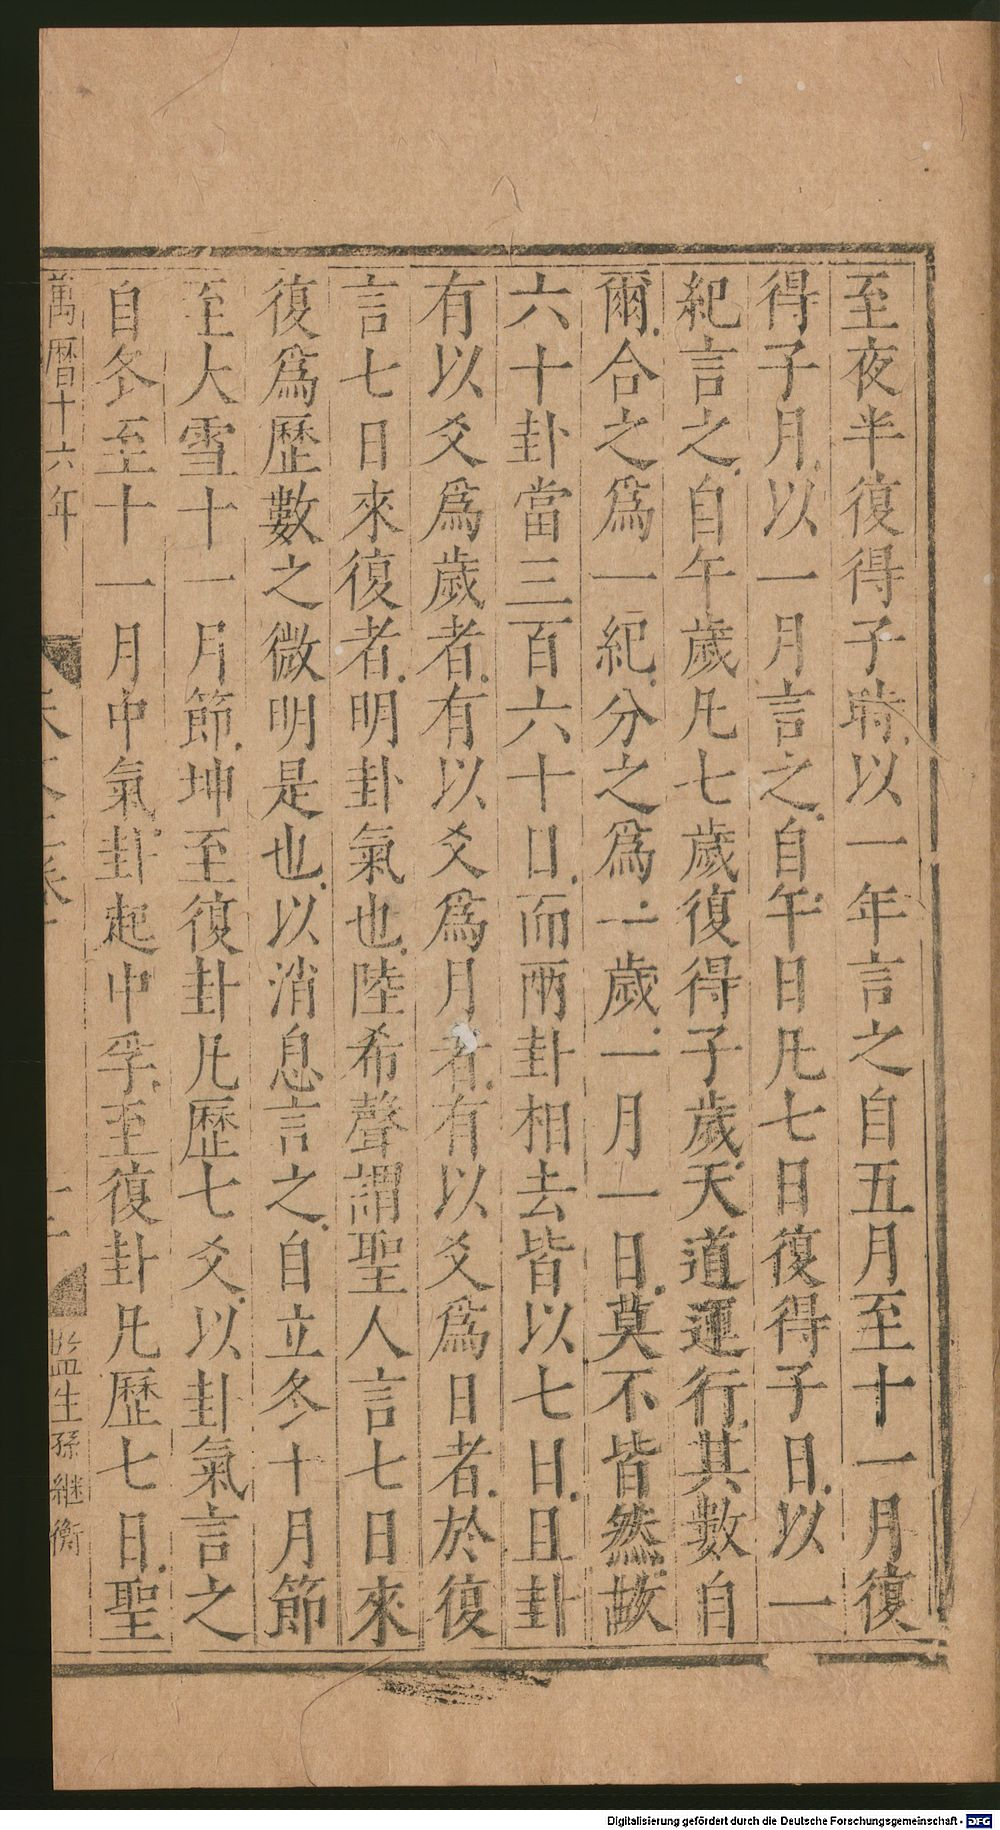 至夜半復得子時以一年言之自五月至十一月復
得子月以一月言之自午日凡七日復得子日以一
紀言之自午歲凡七歲復得子歲天道運行其數自
爾合之爲一紀分之爲一歲一月一日莫不皆然故
六十卦當三百六十日而兩卦相去皆以七日且卦
有以爻爲歲者有以爻爲月者有以爻爲日者於復
言七日來復者明卦氣也陸希聲謂聖人言七日來
復爲歷數之微明是也以消息言之自立冬十月節
至大雪十一月節坤至復卦凡歷七爻以卦氣言之
自冬至十一月中氣卦起中孚至復卦凡歷七日聖
萬曆十六年
監生孫継衡
Digitalisierung gefördert durch die Deutsche Forschungsgemeinschaft - DFG